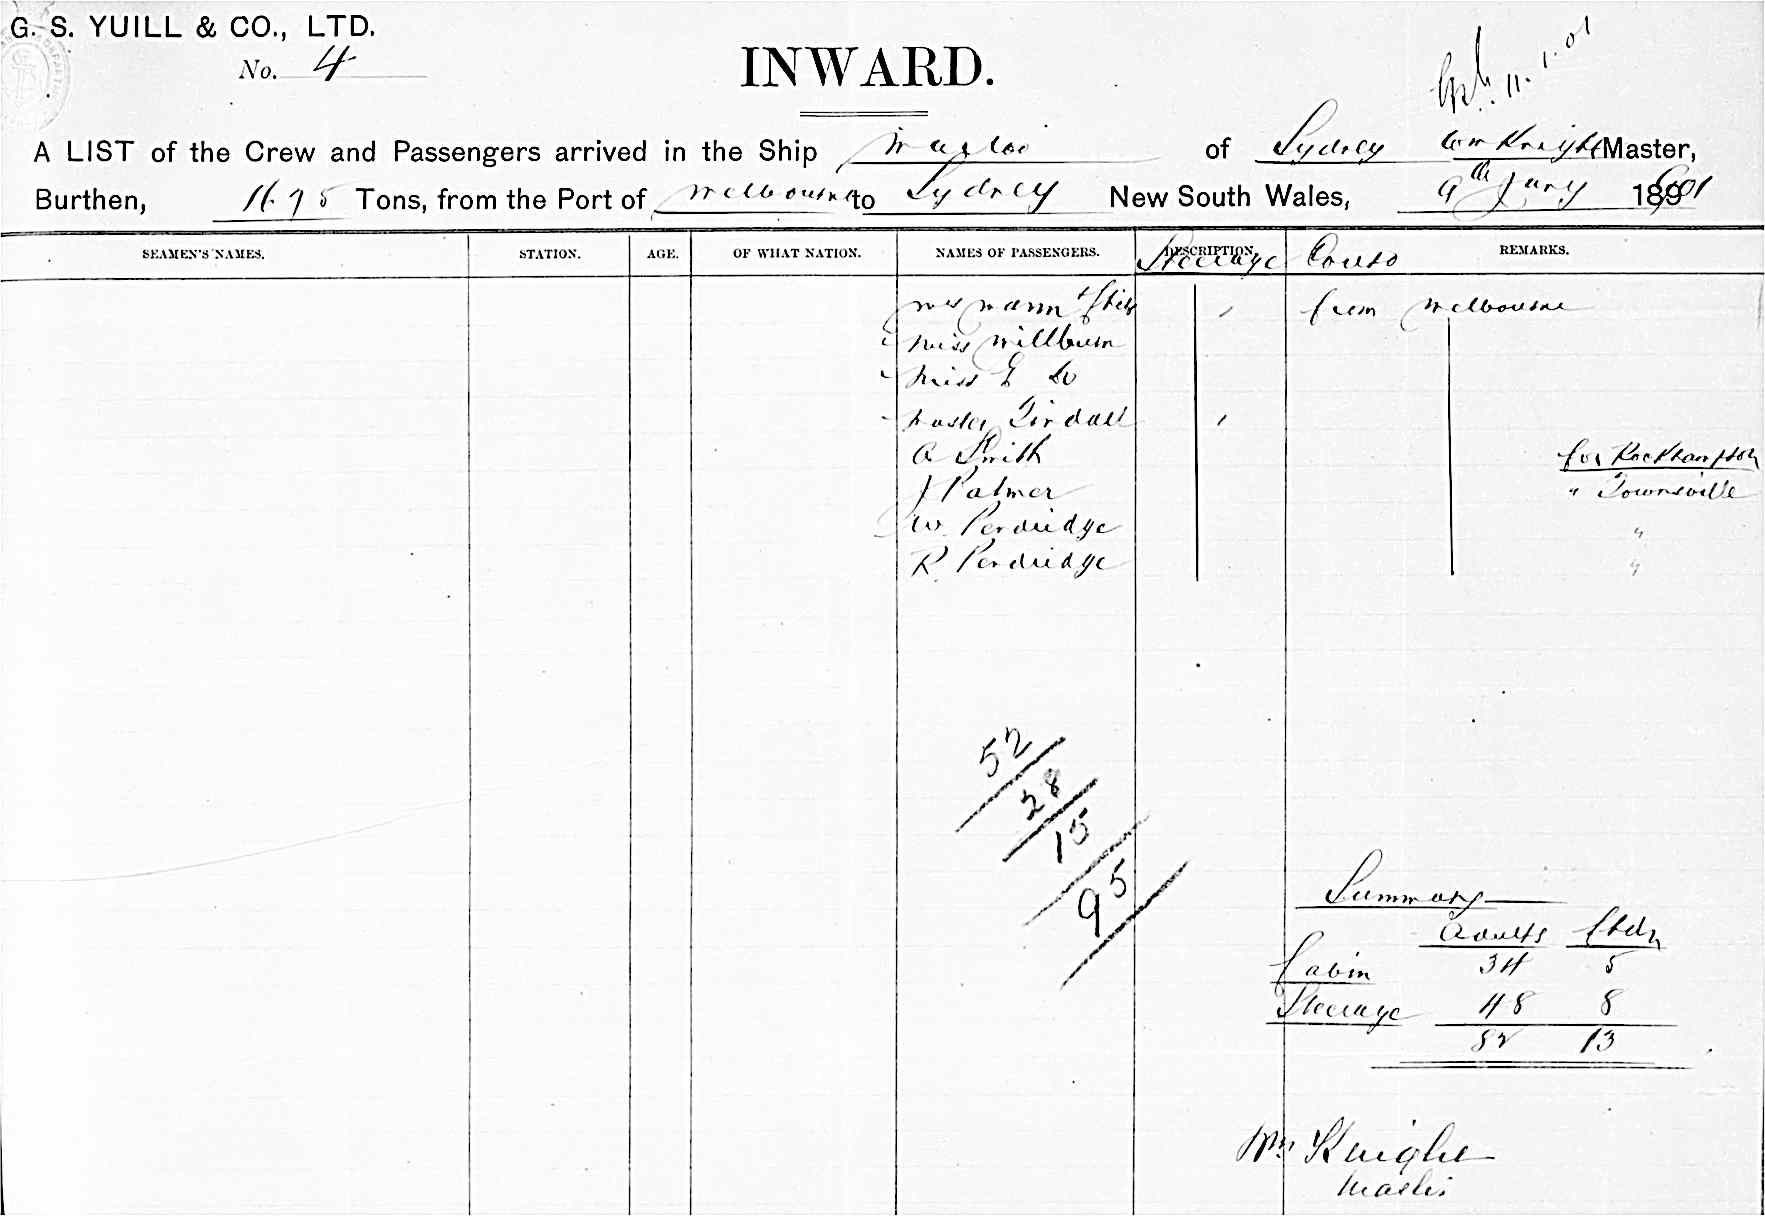 G. S. YUILL & CO., LTD.
No. 4
INWARD.
11.1.01
A LIST of the Crew and Passengers arrived in the Ship Marloo of Sydney Wm Knight Master,
Burthen, 1175 Tons, from the Port of Melbourne to Sydney New South Wales, 9th Jany 1901
SEAMEN'S NAMES. STATION. AGE. OF WHAT NATION. NAMES OF PASSENGERS. DESCRIPTION. Steerage Contd REMARKS.
Mrs Mann & Chdn from Melbourne
Miss Millburn
Miss E Do
Master Tindall
A Smith for Rockhampton
J Palmer " Townsville
W. Perdridge "
R. Perdridge "
52
28
15
95
Summary
Adults Chdn
Cabin 34 5
Steerage 48 8
82 13
Wm Knight
Master